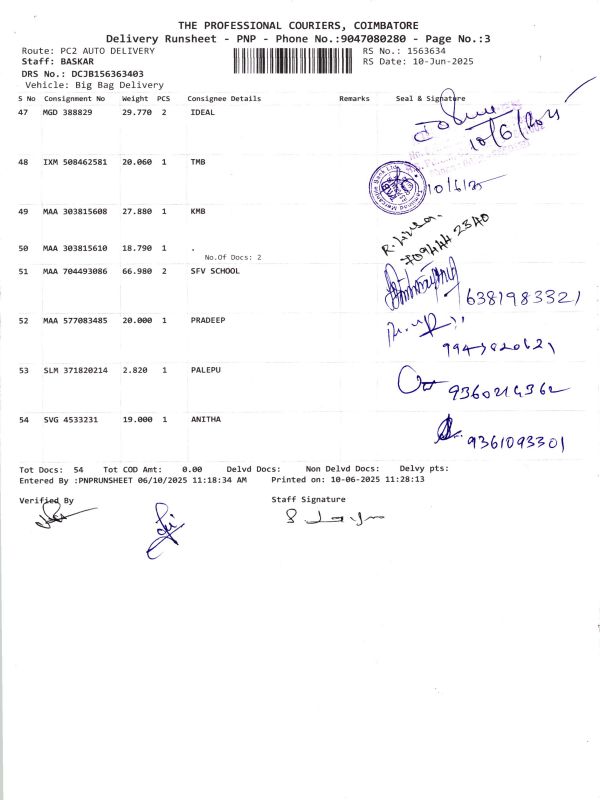 THE PROFESSIONAL COURIERS, COIMBATORE
Delivery Runsheet - PNP - Phone No.:9047080280 - Page No.:3
Route: PC2 AUTO DELIVERY RS No.: 1563634
Staff: BASKAR RS Date: 10-Jun-2025
DRS No.: DCJB156363403
Vehicle: Big Bag Delivery
S No Consignment No Weight PCS Consignee Details Remarks Seal & Signature
47 MGD 388829 29.770 2 IDEAL
10/6/2025
48 IXM 508462581 20.060 1 TMB
10/6/25
49 MAA 303815608 27.880 1 KMB
50 MAA 303815610 18.790 1 .
No.Of Docs: 2
51 MAA 704493086 66.980 2 SFV SCHOOL
6381983321
52 MAA 577083485 20.000 1 PRADEEP
53 SLM 371820214 2.820 1 PALEPU
9360214362
54 SVG 4533231 19.000 1 ANITHA
9361093301
Tot Docs: 54 Tot COD Amt: 0.00 Delvd Docs: Non Delvd Docs: Delvy pts:
Entered By :PNPRUNSHEET 06/10/2025 11:18:34 AM Printed on: 10-06-2025 11:28:13
Verified By Staff Signature